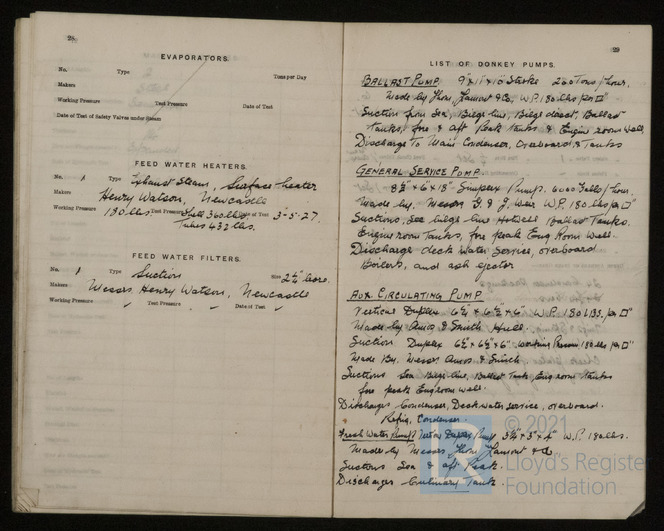 28
EVAPORATORS.
No. Type Tons per Day
Makers
Working Pressure Test Pressure Date of Test
Date of Test of Safety Valves under Steam
FEED WATER HEATERS.
No. 1 Type Exhaust Steam, Surface heater
Makers Henry Watson, Newcastle
Working Pressure 180 lbs. Test Pressure Shell 360 lbs Date of Test 3-5-27.
Tubes 432 lbs.
FEED WATER FILTERS.
No. 1 Type Suction Size 2½" bore.
Makers Messrs. Henry Watson, Newcastle
Working Pressure Test Pressure Date of Test
29
LIST OF DONKEY PUMPS.
BALLAST PUMP 9" × 11" × 10" Stroke 200 Tons/hour.
Made by Thom, Lamont & Co, W.P. 180 lbs per □"
Suction from Sea, Bilge line, Bilge direct, Ballast
tanks, fore & aft Peak tanks & Engine room well,
Discharge to Main Condenser, Overboard & Tanks
GENERAL SERVICE PUMP
8½" × 6" × 18" Simplex Pump. 6000 Galls/hour.
Made by Messrs G & J Weir W.P. 180 lbs per □"
Suctions, Sea bilge line Hotwell Ballast Tanks.
Engine room Tanks, fore peak Eng Room Well.
Discharge deck water service, overboard
Boilers, and ash ejector
AUX. CIRCULATING PUMP
Vertical Duplex 6½" × 6½" × 6" W.P. 180 LBS. per □"
Made by Amos & Smith Hull.
Suction Duplex 6½" × 6½" × 6" working Pressure 180 lbs per □"
Made By. Messrs Amos & Smith
Suctions Sea Bilge line, Ballast Tank, Eng room tanks
fore peak Eng room well.
Discharges Condenser, Deck water service, overboard.
Refrig. Condenser.
Fresh Water Pump Vertical Duplex Pump 3¾" × 3" × 4" W.P. 180 lbs.
Made by Messrs Thom, Lamont & Co
Suctions Sea & aft Peak.
Discharges Culinary Tank.
© 2021
Lloyd's Register
Foundation